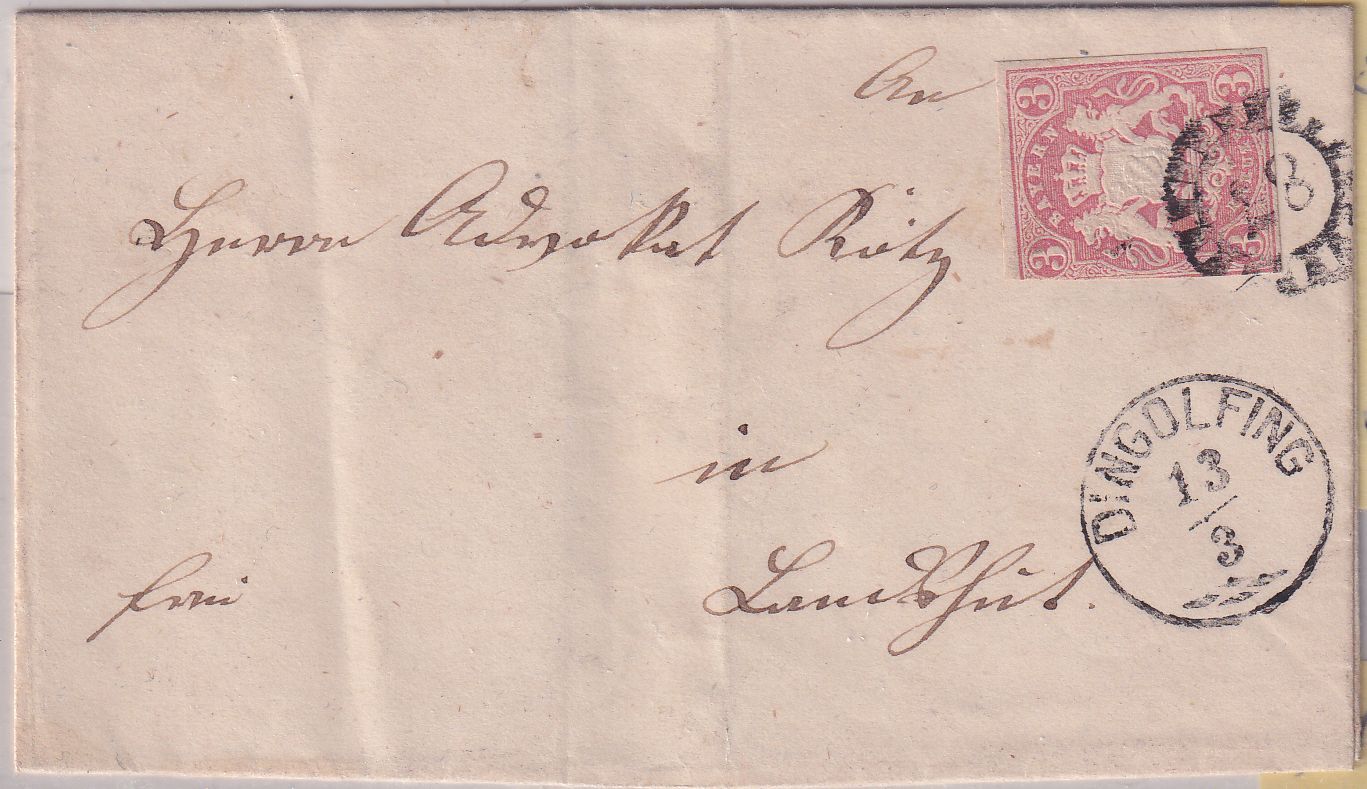 An
Herrn Advokat Rötz
in
Landshut.
frei
3 3
BAYERN
3 3
DINGOLFING
13
3